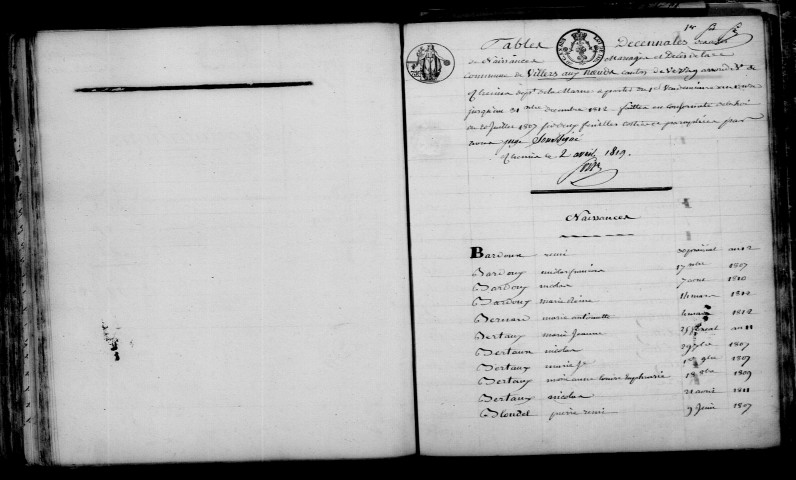 Tables Decennales
de Naissances Mariages et Décès de la
commune de Villers aux Nœuds canton de Verzy arrond.t de
Rheims dep.t de la Marne a partir du 1er Vendemiaire
jusqu'au 31 decembre 1812 faittes en conformité de la loi
du 20 Juillet 1807 feuilles cottées et paraphées par
nous juge Soussigné
Rheims le 2 avril 1819.
Naissances
Bardoux remi 30 prairial an 12
Bardoux 17 1807
Bardoux nicolas 7 aout 1810
Bardoux marie Reine 14 mars 1812
Bernard marie antoinette 1812
Bertaux marie Jeanne an 11
Bertaux nicolas 29 1807
Bertaux marie 1er 9bre 1807
Bertaux marianne louise Euphrasie 18 1809
Bertaux nicolas 21 avril 1811
Blondel pierre remi 9 Juin 1807